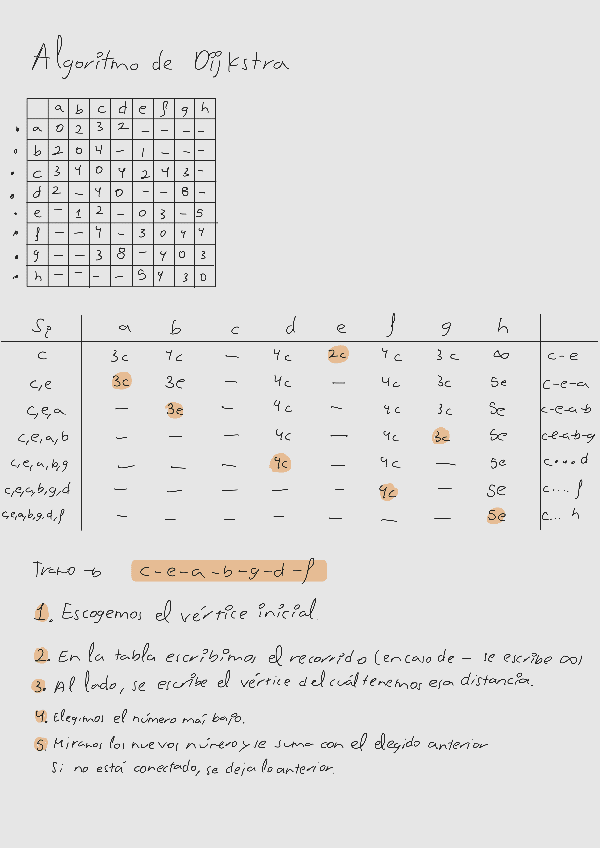 Algoritmo de Dijkstra
a b c d e f g h
a 0 2 3 2 - - - -
b 2 0 4 - 1 - - -
c 3 4 0 4 2 4 3 -
d 2 - 4 0 - - 8 -
e - 1 2 - 0 3 - 5
f - - 4 - 3 0 4 4
g - - 3 8 - 4 0 3
h - - - - 5 4 3 0
Si a b c d e f g h
c 3c 4c - 4c 2c 4c 3c ∞ c-e
c,e 3c 3e - 4c - 4c 3c 5e c-e-a
c,e,a - 3e - 4c - 4c 3c 5e c-e-a-b
c,e,a,b - - 4c - 4c 3c 5e c-e-a-b-g
c,e,a,b,g - - - 4c - 4c - 5e c....d
c,e,a,b,g,d - - - - - 4c - 5e c....f
c,e,a,b,g,d,f - - - - - - - 5e c... h
c-e-a-b-g-d-f
1. Escogemos el vértice inicial.
2. En la tabla escribimos el recorrido (en caso de - se escribe ∞)
3. Al lado, se escribe el vértice del cuál tenemos esa distancia.
4. Elegimos el número más bajo.
5. Miramos los nuevos número y se suma con el elegido anterior
Si no está conectado, se deja lo anterior.